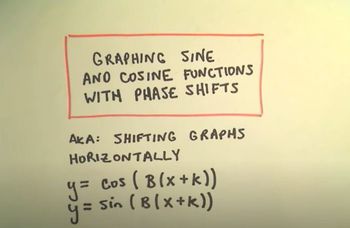 GRAPHING SINE
AND COSINE FUNCTIONS
WITH PHASE SHIFTS
AKA: SHIFTING GRAPHS
HORIZONTALLY
y = cos (B(x+k))
y = sin (B(x+k))